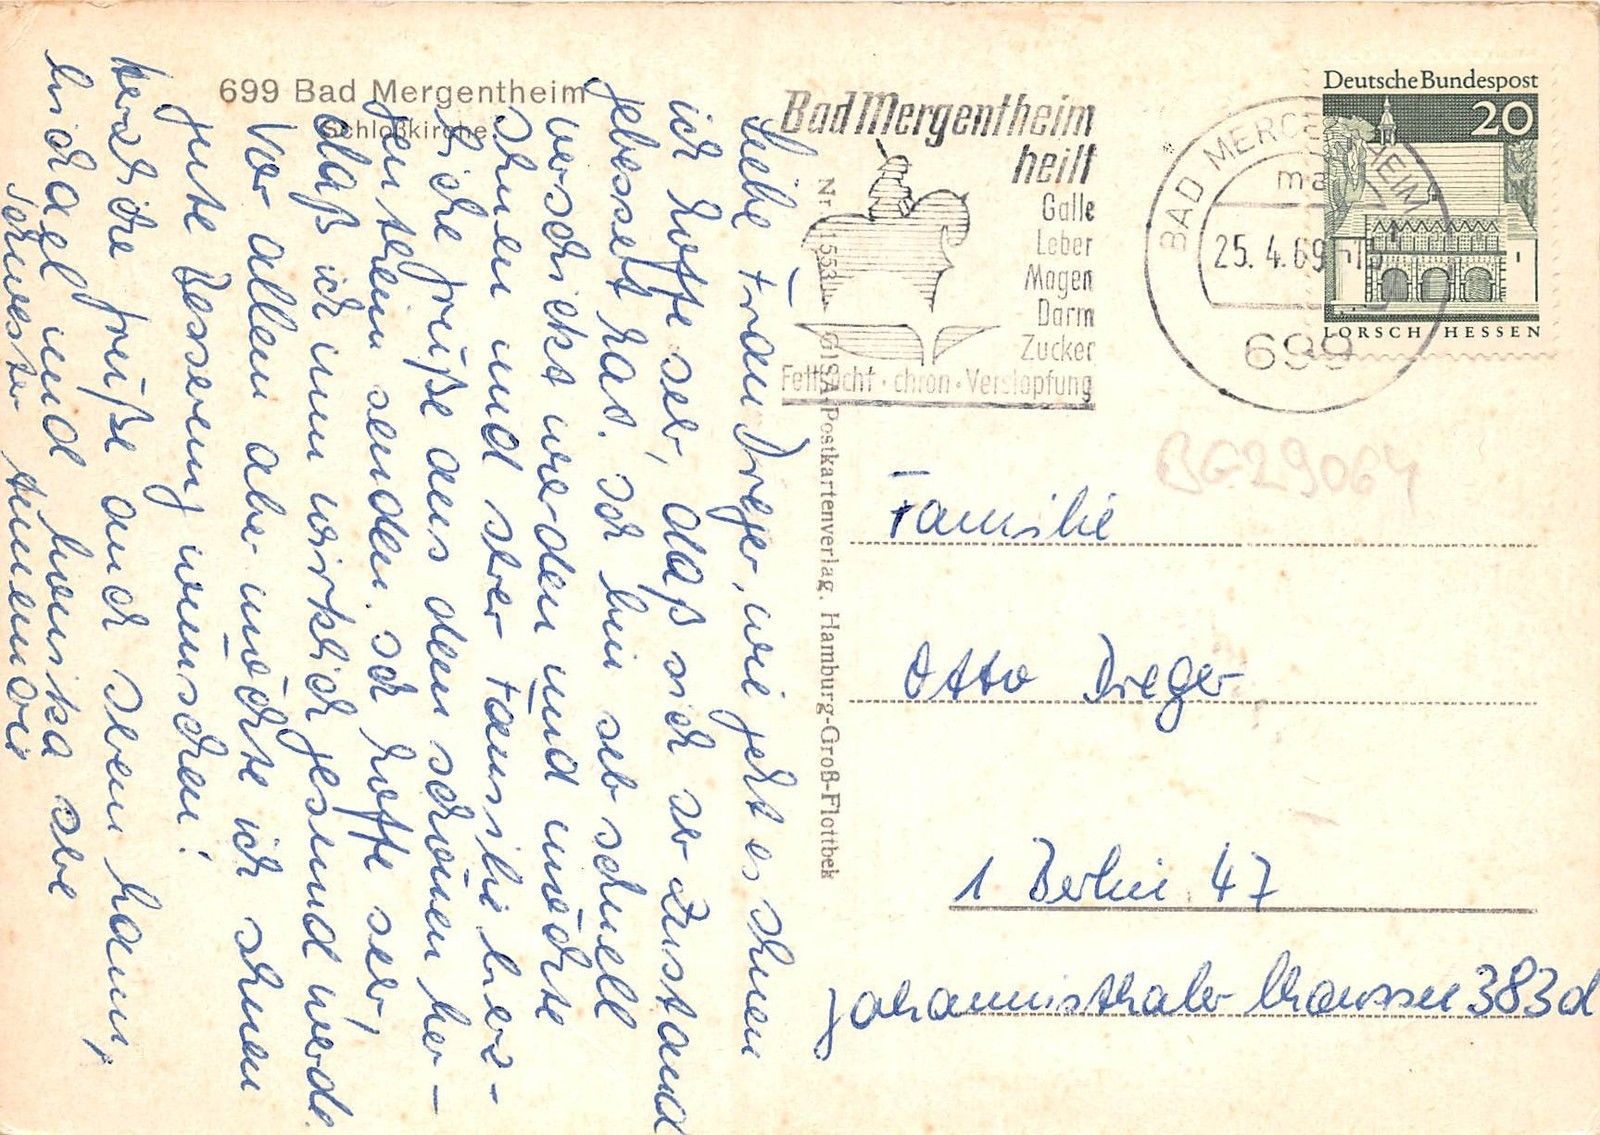 699 Bad Mergentheim
Schloßkirche
Bad Mergentheim
heilt
Galle
Leber
Magen
Darm
Zucker
Fettsucht · chron · Verstopfung
BAD MERGENTHEIM
25. 4. 69
699
Deutsche Bundespost
20
LORSCH HESSEN
BG29064
Nr. 1553
GISA-Postkartenverlag, Hamburg-Groß-Flottbek
Liebe Frau Dreger, wie geht es Ihnen
ich hoffe sehr, daß sich ihr Zustand
gebessert hat. Ich bin sehr schnell
verschickt worden und möchte
Ihnen und Ihrer Familie herz-
liche Grüße aus dem schönen Mer-
gentheim senden. Ich hoffe sehr,
daß ich nun wirklich gesund werde.
Vor allem aber möchte ich Ihnen
gute Besserung wünschen!
herzliche Grüße auch Ihren Mann,
Michael und Monika Ihre
Schwester
Familie
Otto Dreger
1 Berlin 47
Johannisthaler Chaussee 383d